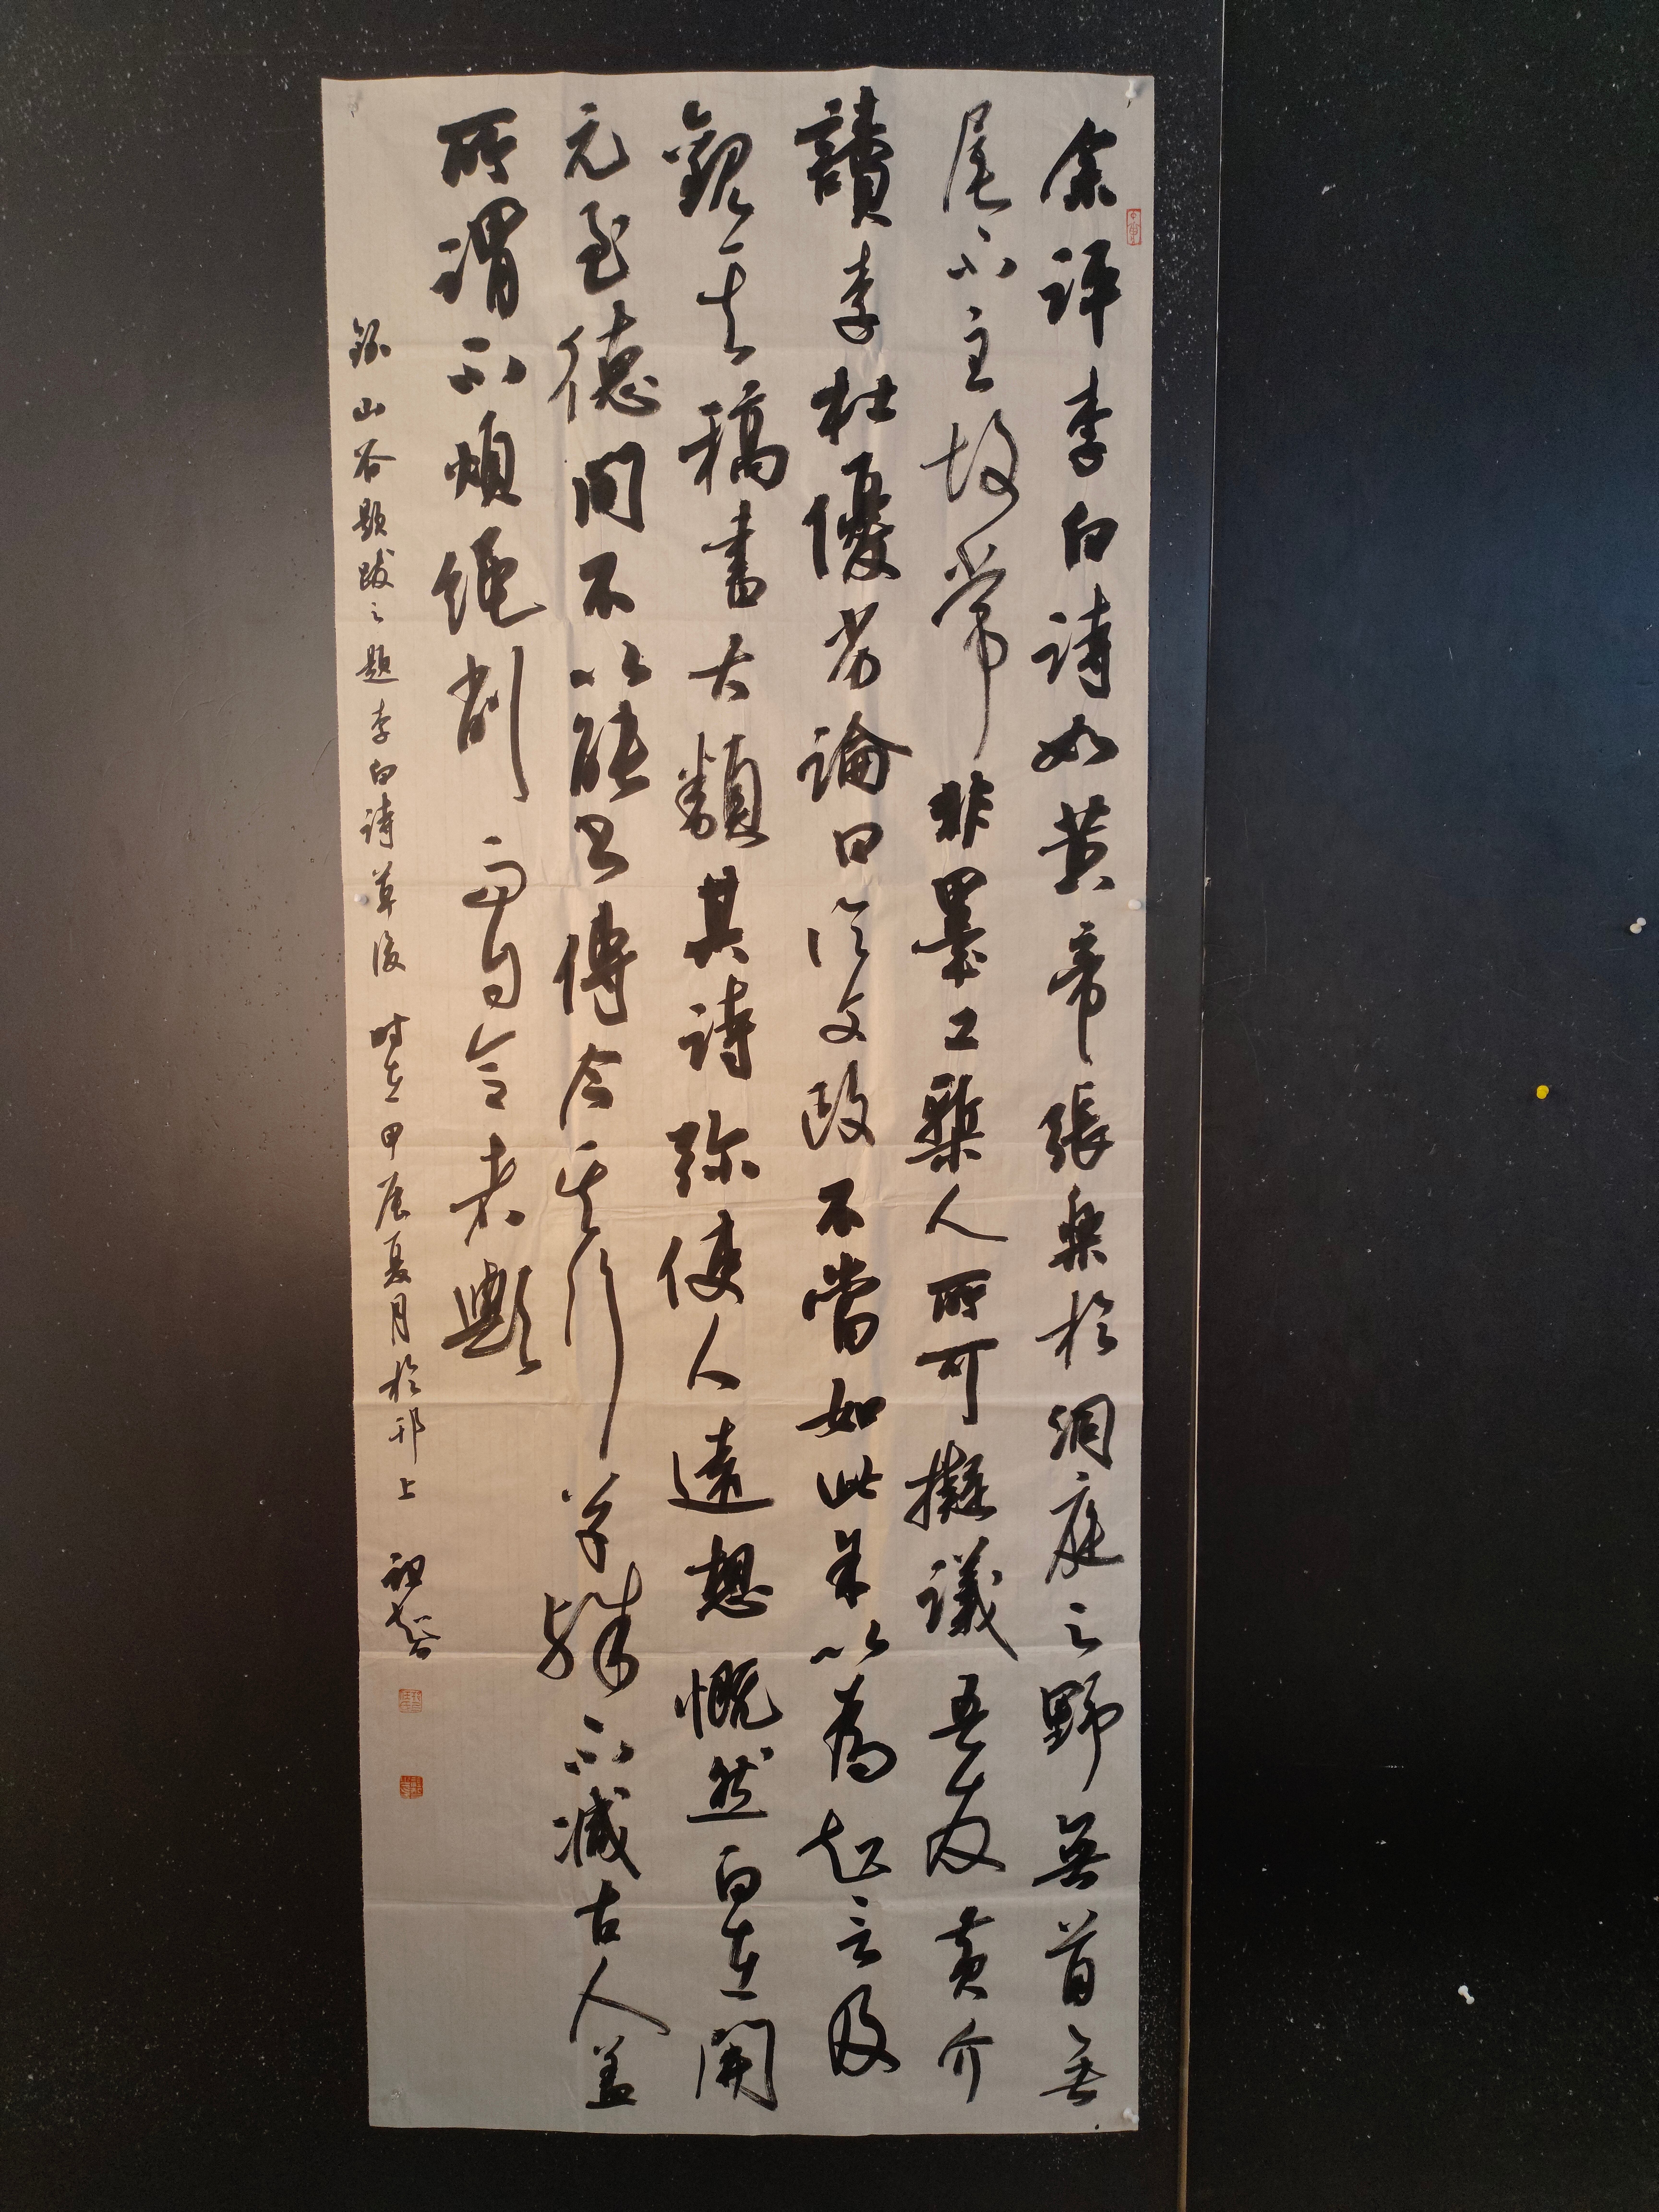 余評李白詩如黃帝張樂於洞庭之野無首無
尾不主故常非墨工槧人所可擬議吾友黃介
讀李杜優劣論曰論文政不當如此余以為知言及
觀其稿書大類其詩弥使人遠想慨然白在開
元至德間不以能書傳今其行草殊不減古人蓋
所謂不煩繩削而自合者歟
錄山谷題跋之題李白詩草後 时在甲辰夏月於邗上